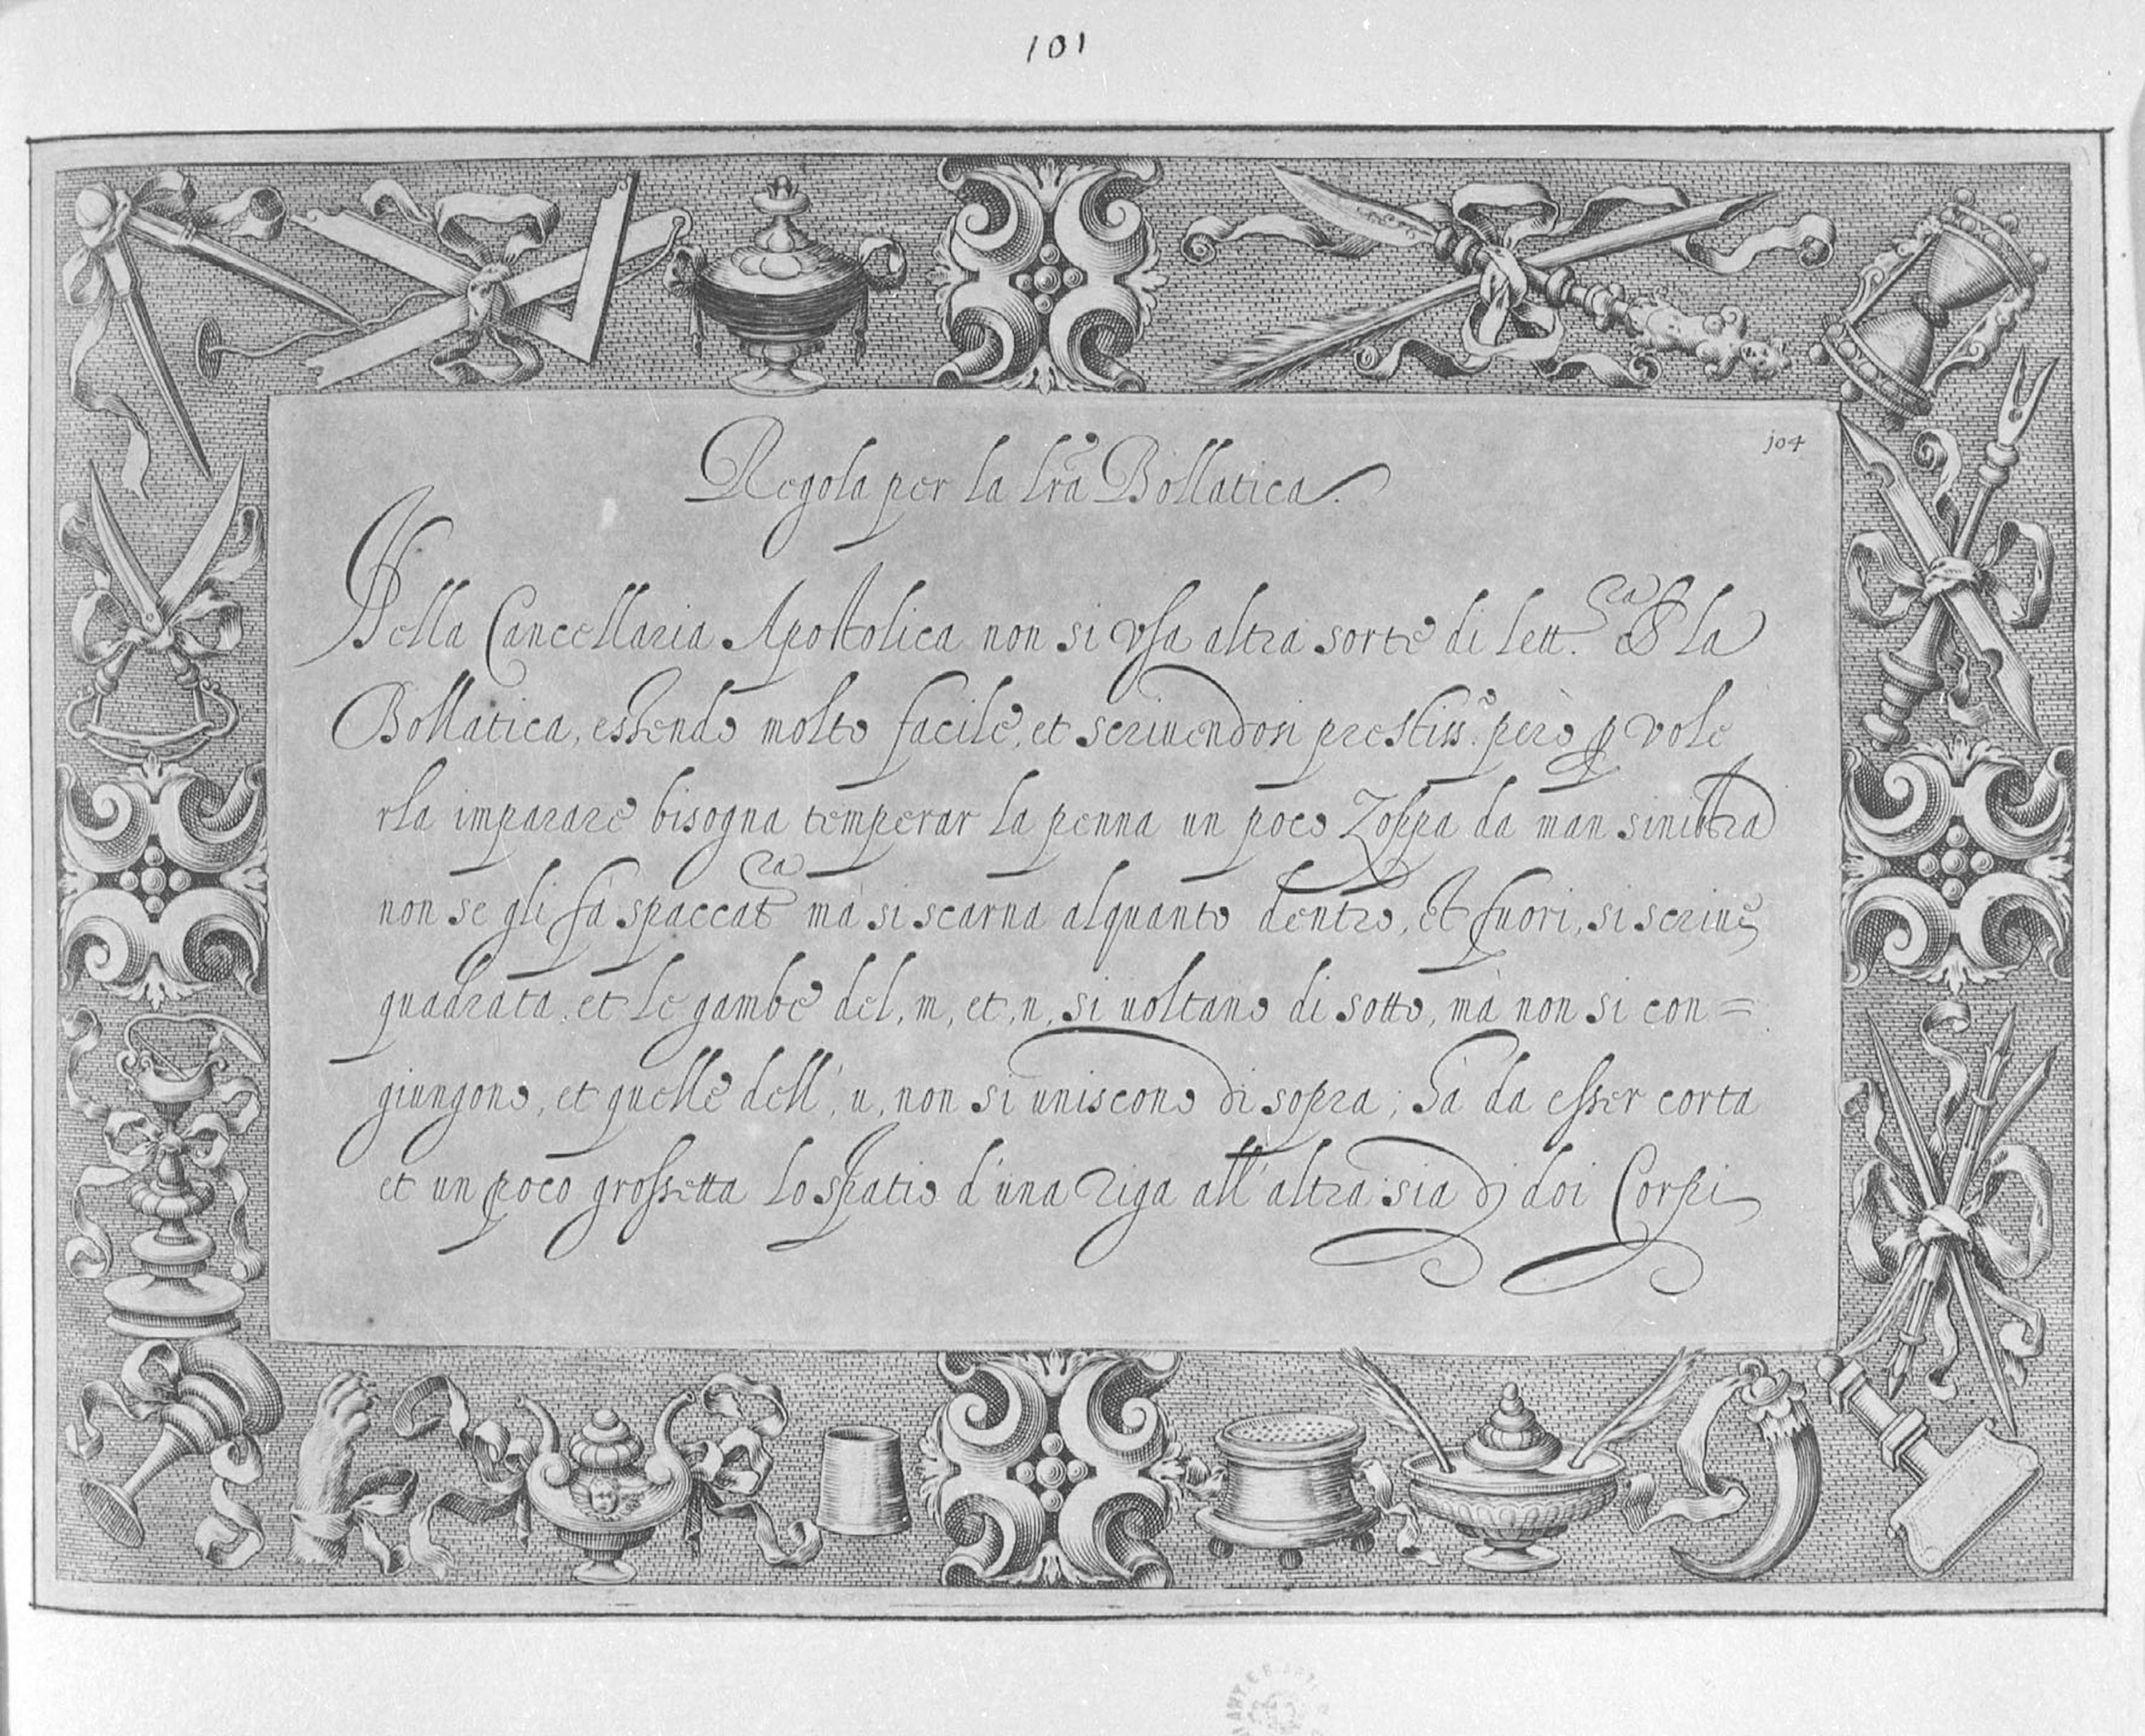 101
104
Regola per la lrã Bollatica.
Nella Cancellaria Apostolica non si vsa altra sorte di lett.ra che la
Bollatica, essendo molto facile, et scriuendosi prestiss.o però p vole
rla imparare bisogna temperar la penna un poco Zoppa da man sinistra
non se gli fà spaccatra mà si scarna alquanto dentro, et fuori, si scriue
quadrata, et le gambe del, m, et, n, si uoltano di sotto, mà non si con=
giungono, et quelle dell', u, non si uniscono di sopra; Hà da esser corta
et un poco grossetta Lo spatio d'una riga all'altra sia di doi Corpi